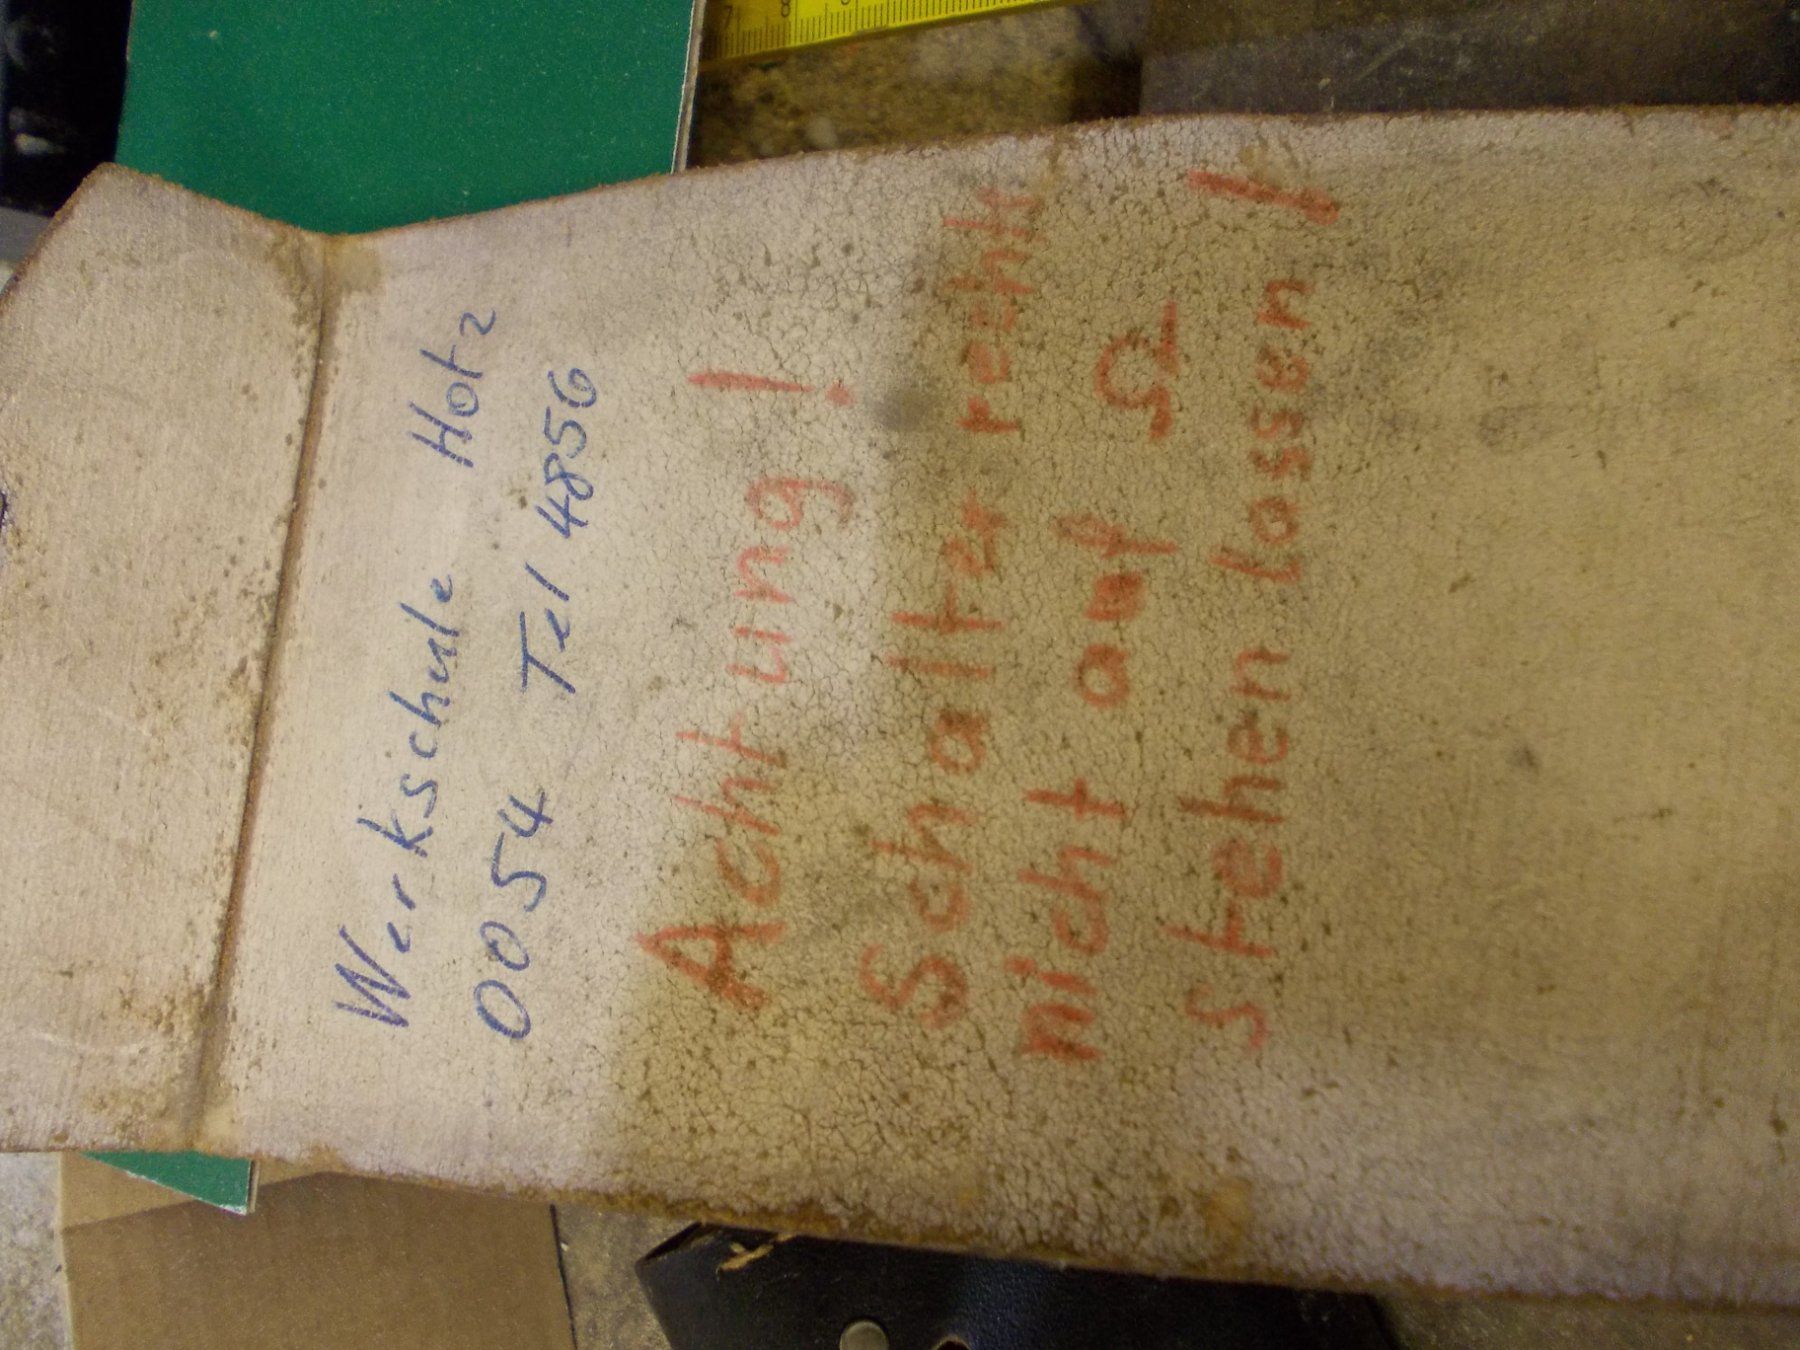 Werkschule Hotz
0054 Tel 4856
Achtung!
Schalter rechts
nicht auf Ω
stehen lassen!
7 8